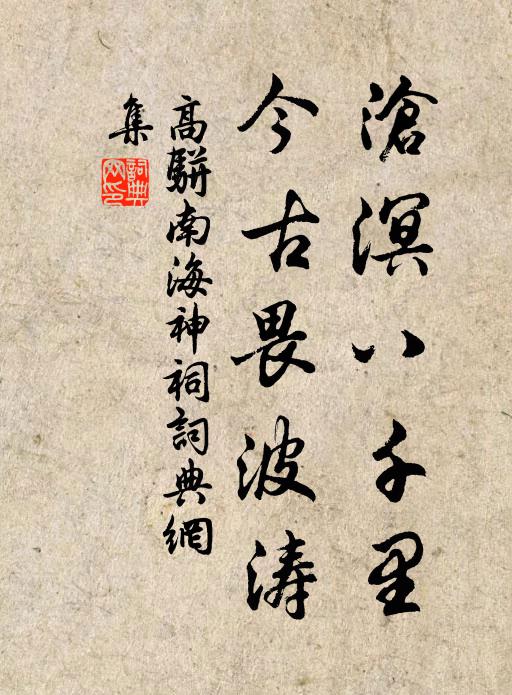 滄溟八千里
今古畏波濤
高駢南海神祠詞典網
集
詞典網印